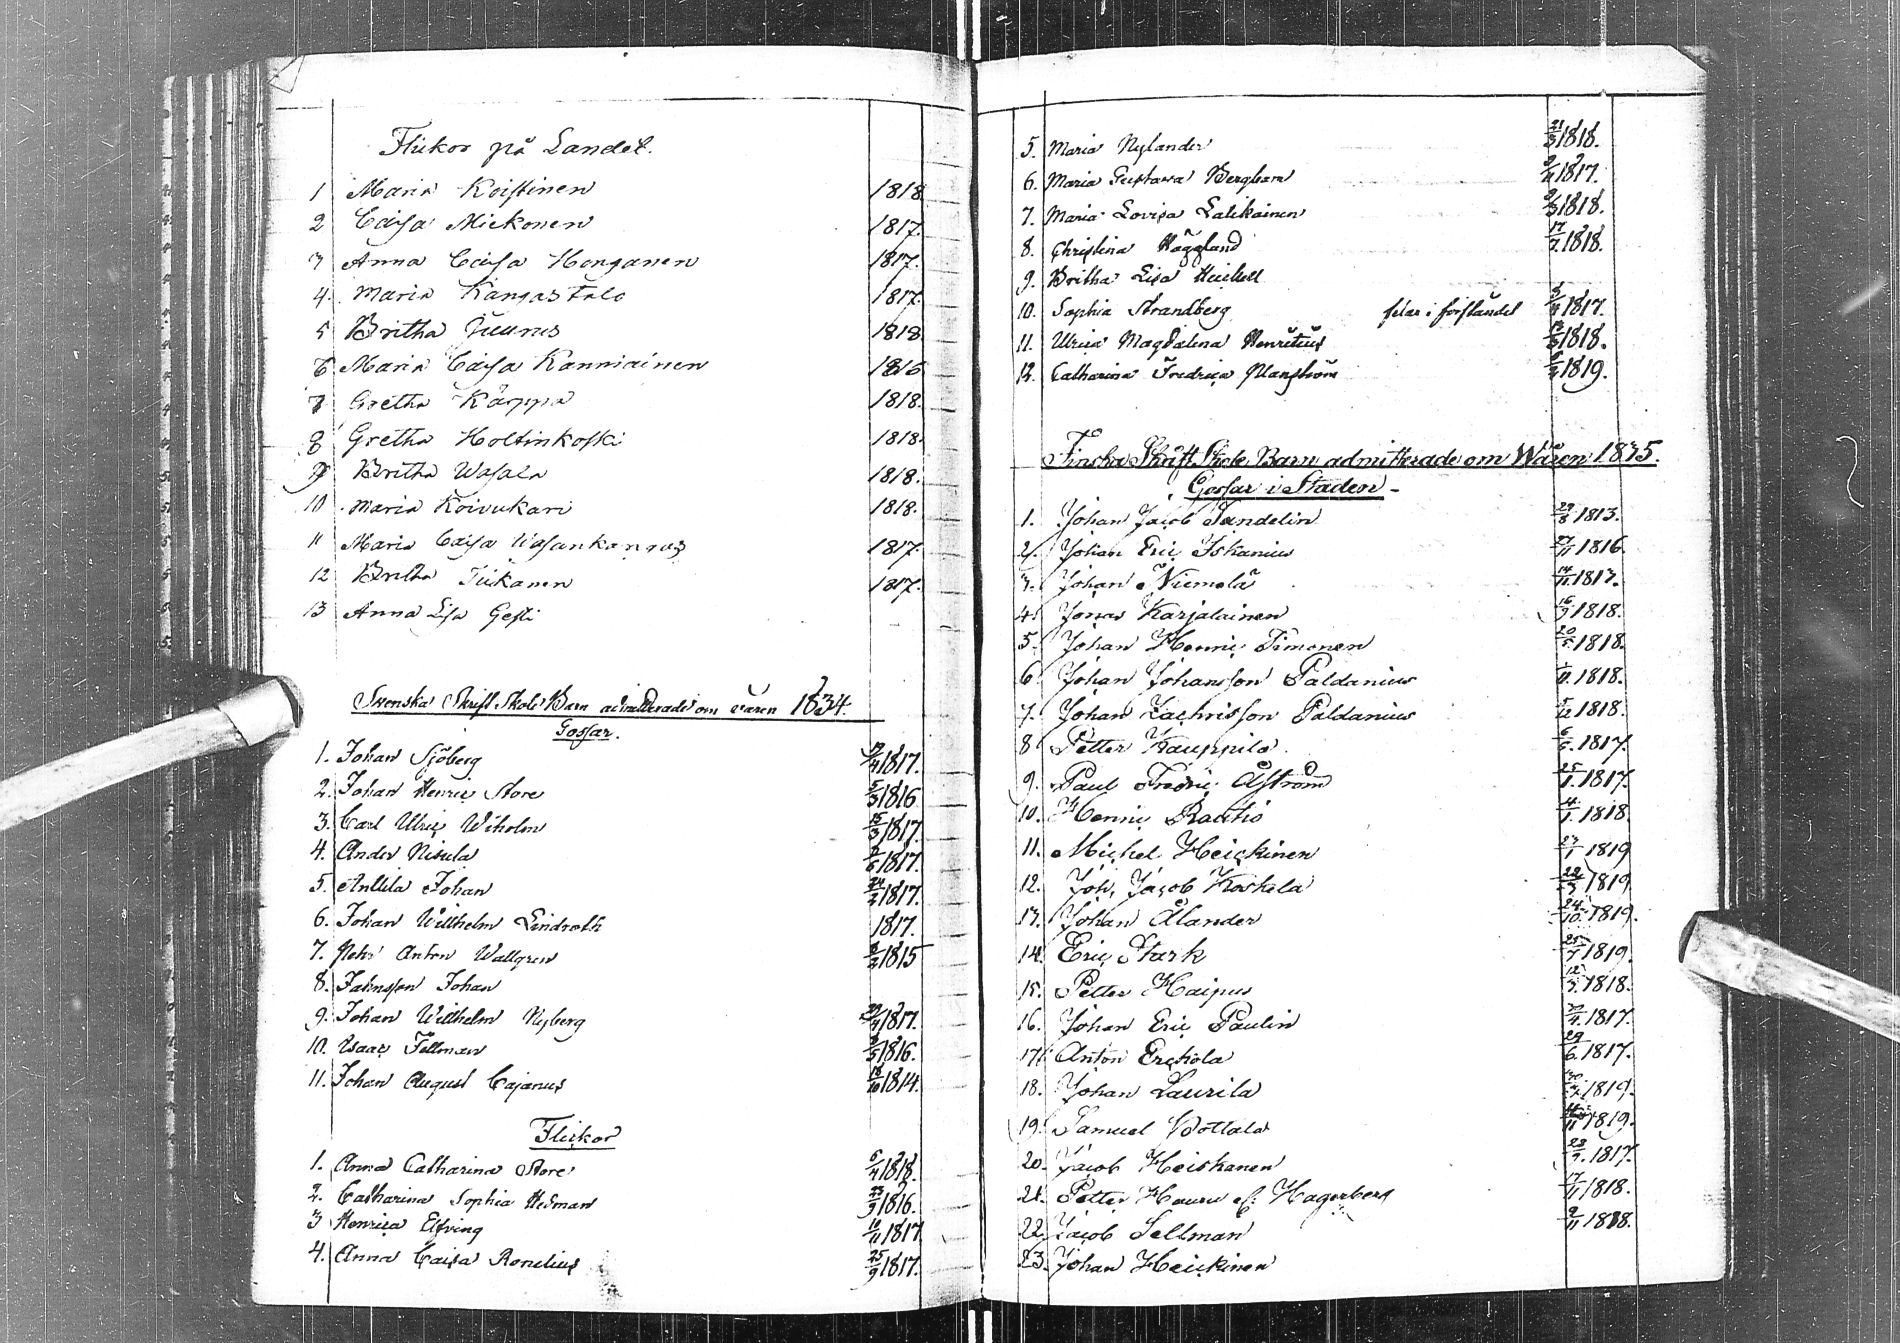 Flickor på Landet.
1 Maria Koistinen 1818
2 Caisa Mickonen 1817.
3 Anna Caisa Honganen 1817.
4. Maria Kangastalo 1817.
5 Britha Juurus 1818
6 Maria Caisa Kanniainen 1816
7 Gretha Kärppä 1818.
8 Gretha Holtinkoski 1818.
9 Britha Wasala 1818.
10 Maria Koivukari 1818.
11 Maria Caisa Wasankangas 1817.
12 Britha Tiikanen 1817.
13 Anna Lisa Gesti
Svenska Skrift Skole Barn admitterade om våren 1834.
Gossar.
1. Johan Sjöberg 1817.
2. Johan Henric Store 1816
3. Carl Ulric Wiholm 15/3 1817.
4. Ander Nisula 1817.
5. Anttila Johan 24/2 1817.
6. Johan Willhelm Lindroth 1817.
7. Anton Wallgren 1815
8. Johnsson Johan
9. Johan Willhelm Nyberg 1817.
10. Isaac Fellman 1816.
11. Johan August Cajanus 18/10 1814.
Flickor
1. Anna Catharina Store 6/4 1818.
2. Catharina Sophia Hedman 23/9 1816.
3 Henrica Elfving 10/11 1817
4. Anna Caisa Ronelius 25/9 1817.
5. Maria Nylander 21/3 1818.
6. Maria Gustava Bergbom 1817.
7. Maria Lovisa Lalikainen 1818.
8. Christina Häggland 17/7 1818.
9. Britha Lisa Haikell
10. Sophia Strandberg felar i förståndet 1817.
11. Ulrica Magdalena Henritius 1818.
12. Catharina Fredrica Manström 1819.
Finska Skrift Skole Barn admitterade om Wåren 1835.
Gossar i Staden -
1. Johan Jacob Sandelin 29/8 1813.
2. Johan Eric Johanius 27/11 1816.
3. Johan Niemelä 14/11 1817.
4. Jonas Karjalainen 16/9 1818.
5. Johan Henric Simonen 20/5 1818.
6. Johan Johansson Paldanius 1818.
7. Johan Zachrisson Paldanius 5/12 1818.
8 Petter Kauppila 1817.
9. Paul Fredric Åström 25/1 1817.
10. Henric Rautio 14/1 1818.
11. Michel Heickinen 27/1 1819
12. Joh. Jacob Koskela 22/3 1819
13. Johan Ålander 24/10 1819.
14. Eric Stark 25/7 1819.
15. Petter Haipus 12/3 1818.
16. Johan Eric Paulin 1817.
17. Anton Erckola 29/6 1817.
18. Johan Laurila 1819.
19. Samuel Wottala 1819.
20. Jacob Heiskanen 1817.
21. Petter Hagerberg 17/11 1818.
22. Jacob Sellman 9/11 1818.
23. Johan Heickinen